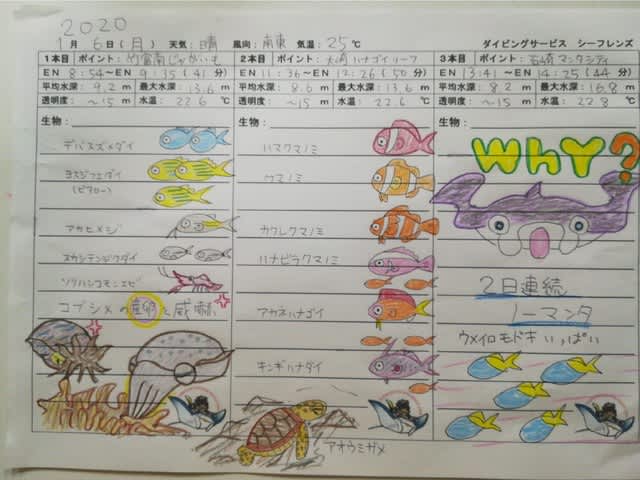 2020
1月 6日(月) 天気: 晴 風向: 南東 気温: 25℃ ダイビングサービス シーフレンズ
1本目 ポイント: 竹富南じゃがいも
EN 8:54〜EN 9:35 (41分)
平均水深: 9.2m 最大水深: 13.6m
透明度: 〜15m 水温: 22.6℃
生物:
デバスズメダイ
ヨスジフエダイ
(ピアロー)
アカヒメジ
スカシテンジクダイ
ソリハシコモンエビ
コブシメの産卵と威嚇
2本目 ポイント: 大崎ハナゴイリーフ
EN 11:36〜EN 12:26 (50分)
平均水深: 8.6m 最大水深: 13.6m
透明度: 〜15m 水温: 22.6℃
生物:
ハマクマノミ
クマノミ
カクレクマノミ
ハナビラクマノミ
アカネハナゴイ
キンギョハナダイ
アオウミガメ
3本目 ポイント: 石崎マンタシティ
EN 13:41〜EN 14:25 (44分)
平均水深: 8.2m 最大水深: 16.8m
透明度: 〜15m 水温: 22.8℃
生物:
WhY?
2日連続
ノーマンタ
ウメイロモドキいっぱい